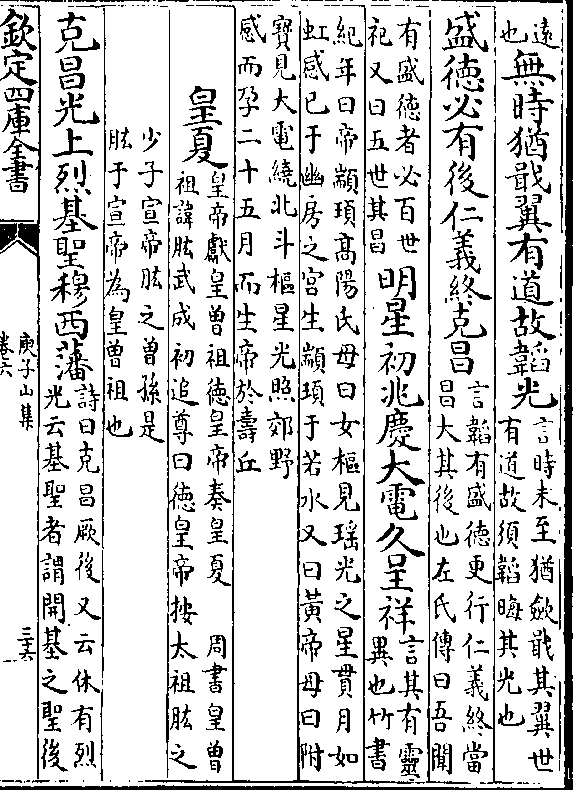 遠
也
無時猶戢翼有道故韜光
言時未至猶斂戢其翼世
有道故須韜晦其光也
盛德必有後仁義終克昌
言韜有盛德更行仁義終當
昌大其後也左氏傳曰吾聞
有盛德者必百世
祀又曰五世其昌
明星初兆慶大電久呈祥
言其有靈
異也竹書
紀年曰帝顓頊髙陽氏母曰女樞見瑤光之星貫月如
虹感已于幽房之宮生顓頊于若水又曰黃帝母曰附
寶見大電繞北斗樞星光照郊野
感而孕二十五月而生帝於壽丘
皇夏
皇帝獻皇曾祖德皇帝奏皇夏 周書皇曾
祖諱肱武成初追尊曰德皇帝按太祖肱之
少子宣帝肱之曾孫是
肱于宣帝為皇曾祖也
克昌光上烈基聖穆西藩
詩曰克昌厥後又云休有烈
光云基聖者謂開基之聖後
欽定四庫全書
庾子山集
卷六
三六